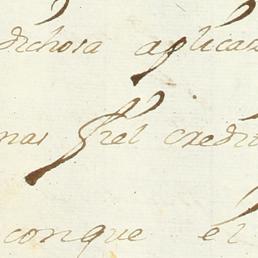 dichosa aplicas
mas fiel credit
conque el